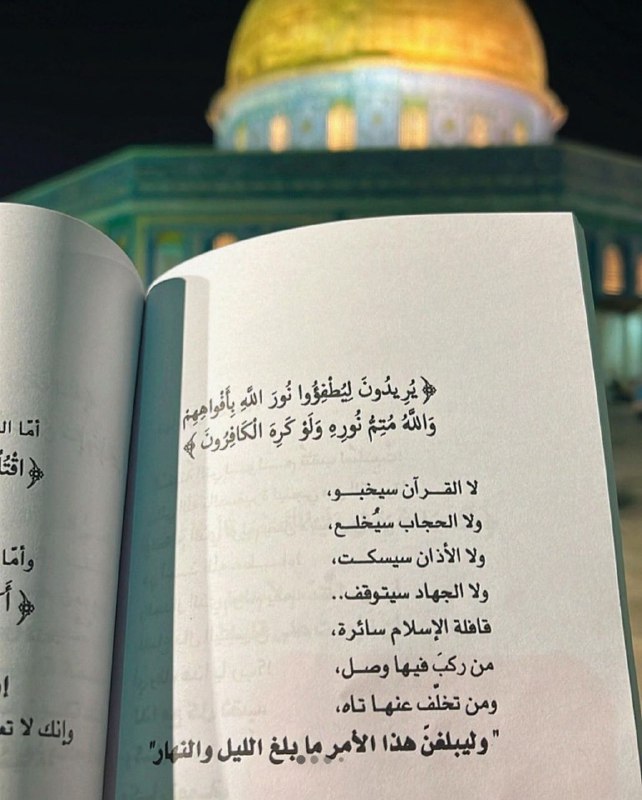 ﴿يُرِيدُونَ لِيُطْفِؤُوا نُورَ اللَّهِ بِأَفْوَاهِهِمْ
وَاللَّهُ مُتِمُّ نُورِهِ وَلَوْ كَرِهَ الْكَافِرُونَ﴾
لا القـرآن سيخبـو،
ولا الحجاب سيُخلـع،
ولا الأذان سيسكـت،
ولا الجهاد سيتوقف..
قافلة الإسلام سائرة،
من ركبَ فيها وصـل،
ومن تخلّف عنهـا تاه،
"وليبلغنّ هذا الأمر ما بلغ الليل والنهار"
وأمّا
وإنك لا